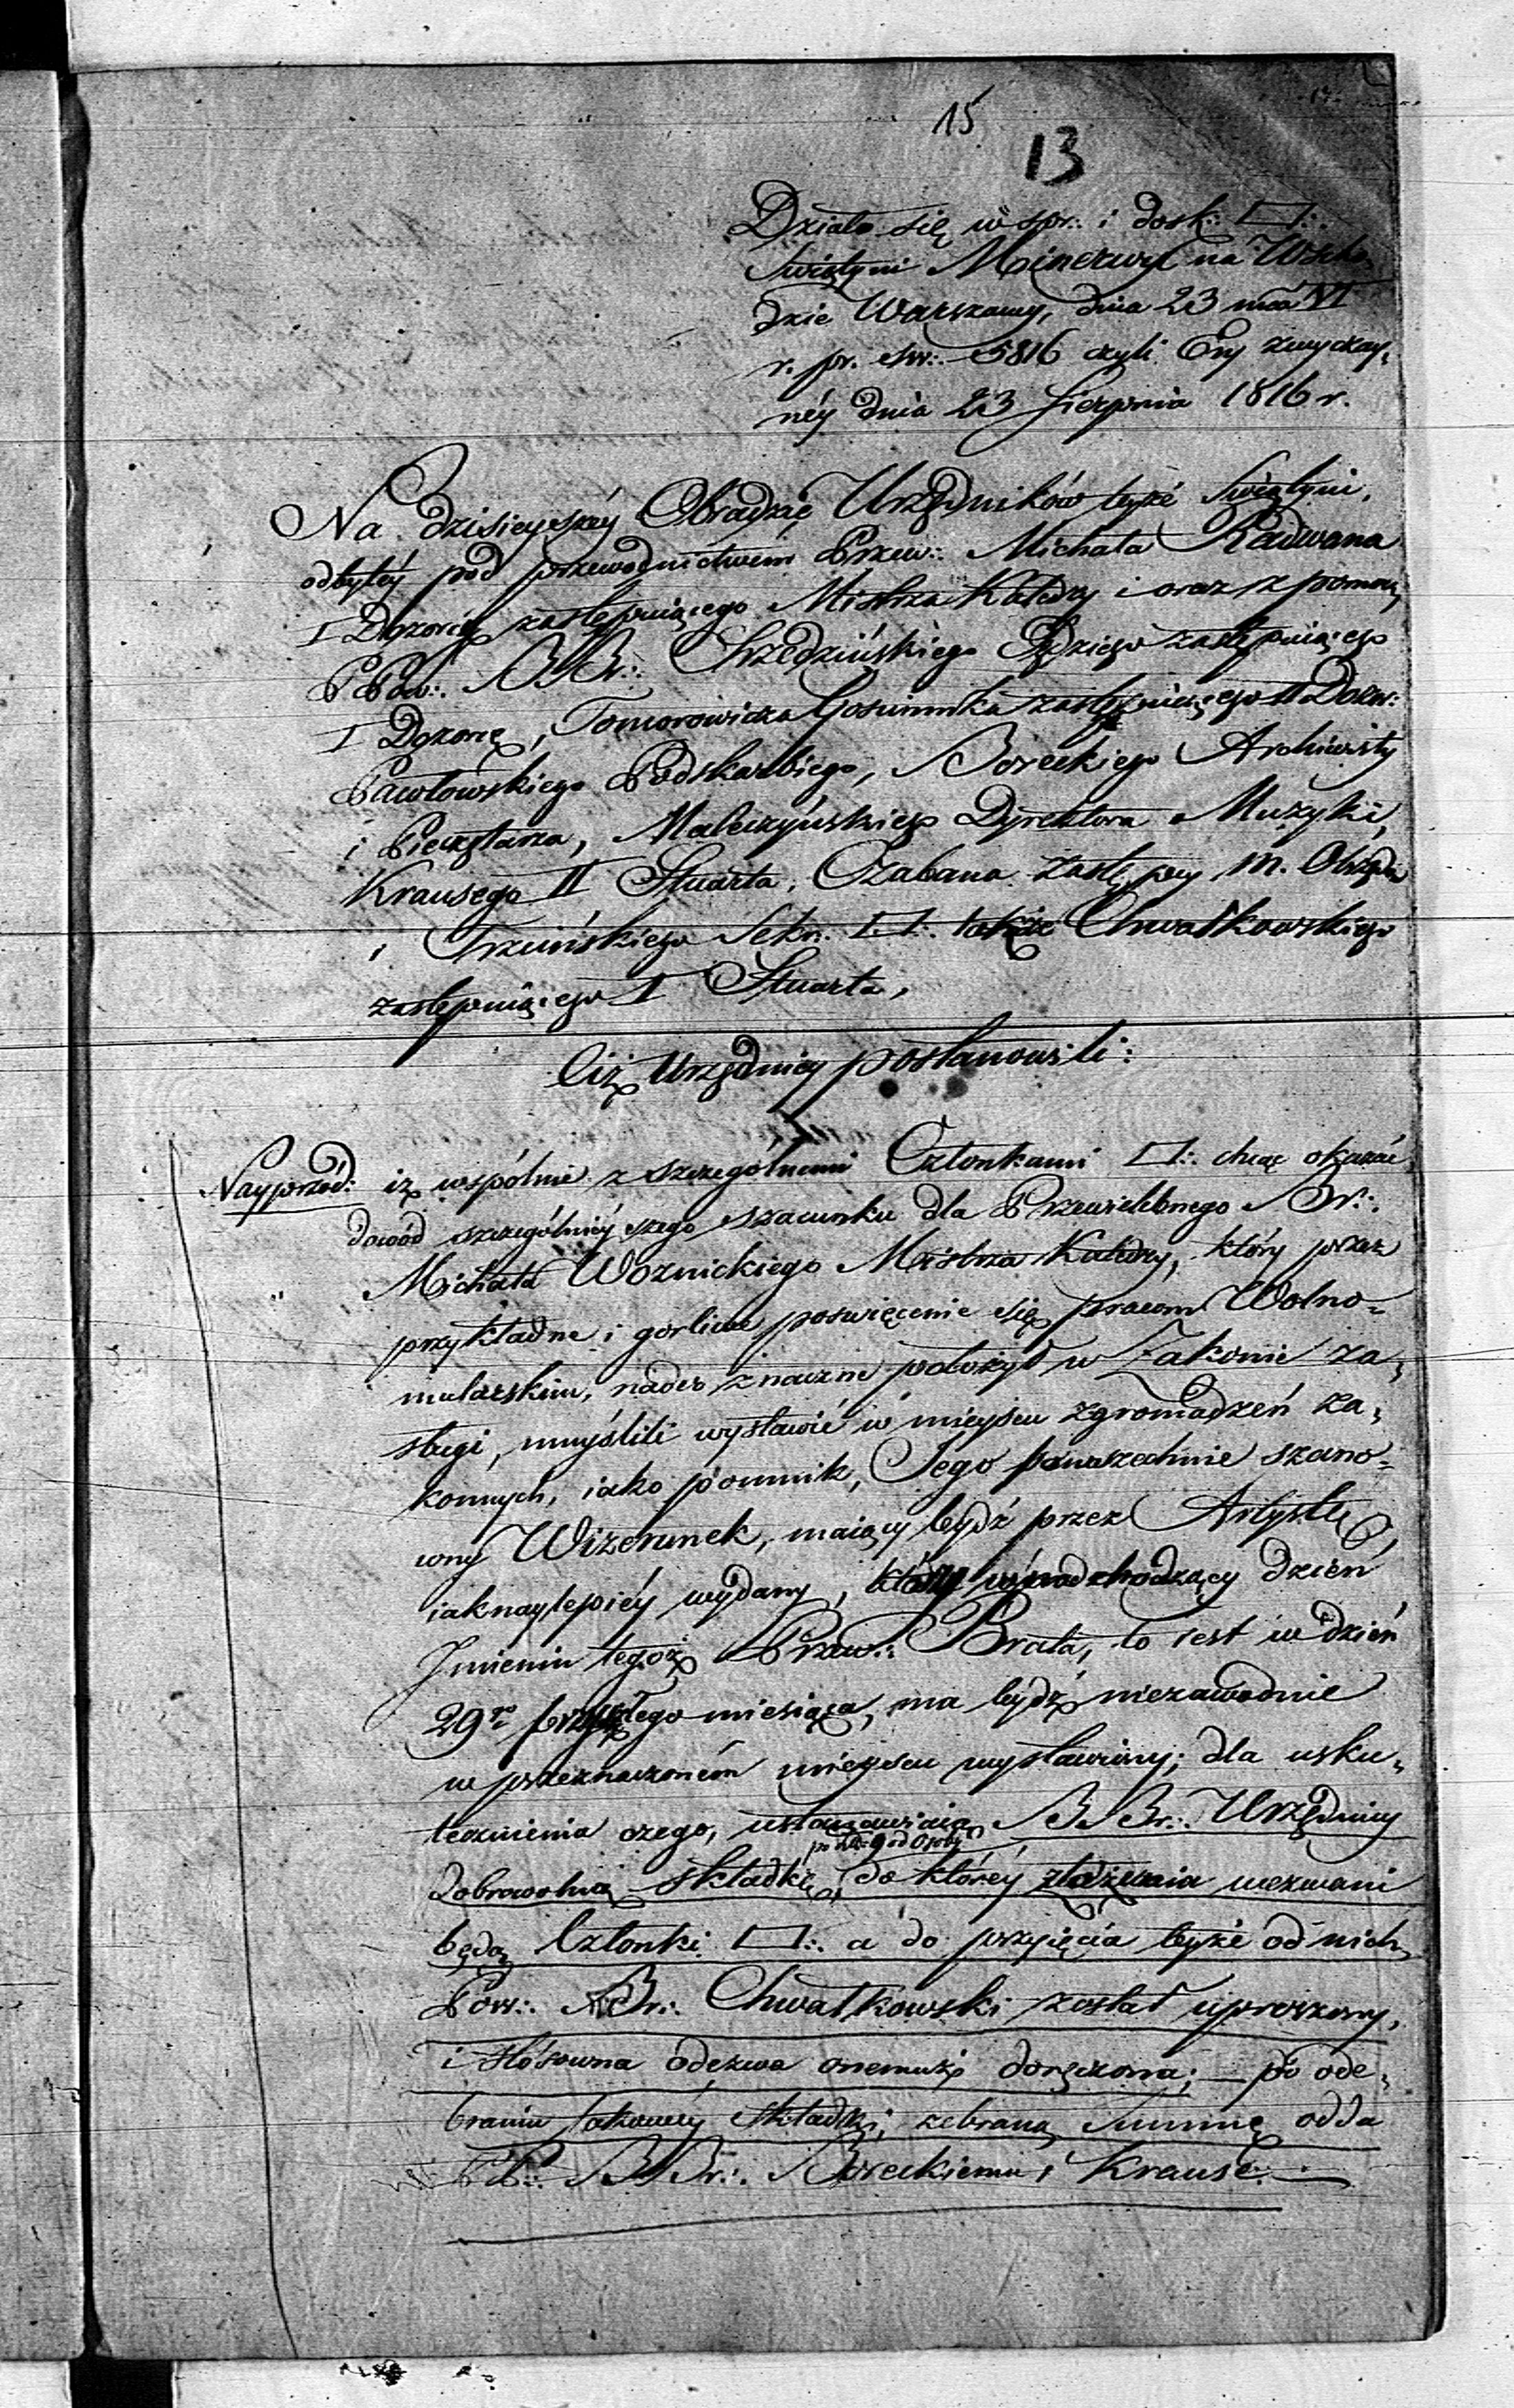 15
13
Działo się w spr:. i dosk:. □:.
Swiątyni Minerwy na Wscho„
dzie Warszawy, dnia 23 mca VI
r. pr. Sw:. 5816 czyli Ery zwyczay„
néy dnia 23 Sierpnia 1816 r.
Na dzisieyszéy Obradzie Urzędników teyże Swiątyni,
odbytéy pod przewodnictwem Przew:. Michała Radwana
I Dozorcę zastępuiącego Mistrza Katedry i oraz z pomocą
P Pow:. B Br:. Srzedzińskiego Sędziego zastępuiącego
I Dozorcę, Tomorowicza Jósiunka zastępuiącego II Dozor:
Pawłowskiego Podskarbiego, Boreckiego Archiwisty
i Pieczętarza, Maleczyńskiego Dyrektora Muzyki,
Krausego II Stuarta, Czabana zastępcy M. Obrzędów
i Trzcińskiego Sekr. □:. także Chwałkowskiego
zastępuiącego I Stuarta,
Ciż Urzędnicy postanowili:
Nayprzód: iż wspólnie z szczególnemi Członkami □:. chcąc okazać
dowód szczególniéyszego szacunku dla Przewielebnego Br:.
Michała Woznickiego Mistrza Katedry, który przez
przykładne i gorliwe poswięcenie się pracom Wolno-
mularskim, nader znaczne położył w Zakonie za„
sługi, umyślili wystawić w mieyscu zgromadzeń za„
konnych, iako pomnik, Jego powszechnie szano-
wny Wizerunek, maiący bydź przez Artystę
iaknaylepiéy wydany, który w nadchodzący dzień
Jmienin tegoż Przew:. Brata, to iest w dzień
29go przyszłego miesiąca, ma bydź niezawodnie
w przeznaczoném mieyscu wystawiony; dla usku„
tecznienia czego, ustanawiaią B Br:. Urzędnicy
po złł: 9 od Osoby
dobrowolną składkę, do któréy złożenia wezwani
będą Członki □:. a do przyięcia teyże od nich
Pow:. Br:. Chwałkowski został uproszony,
i stósowna odezwa onemuż doręczona; — po ode„
braniu takowéy składki, zebraną Summę odda
P P:. B Br:. Boreckiemu i Krause. —